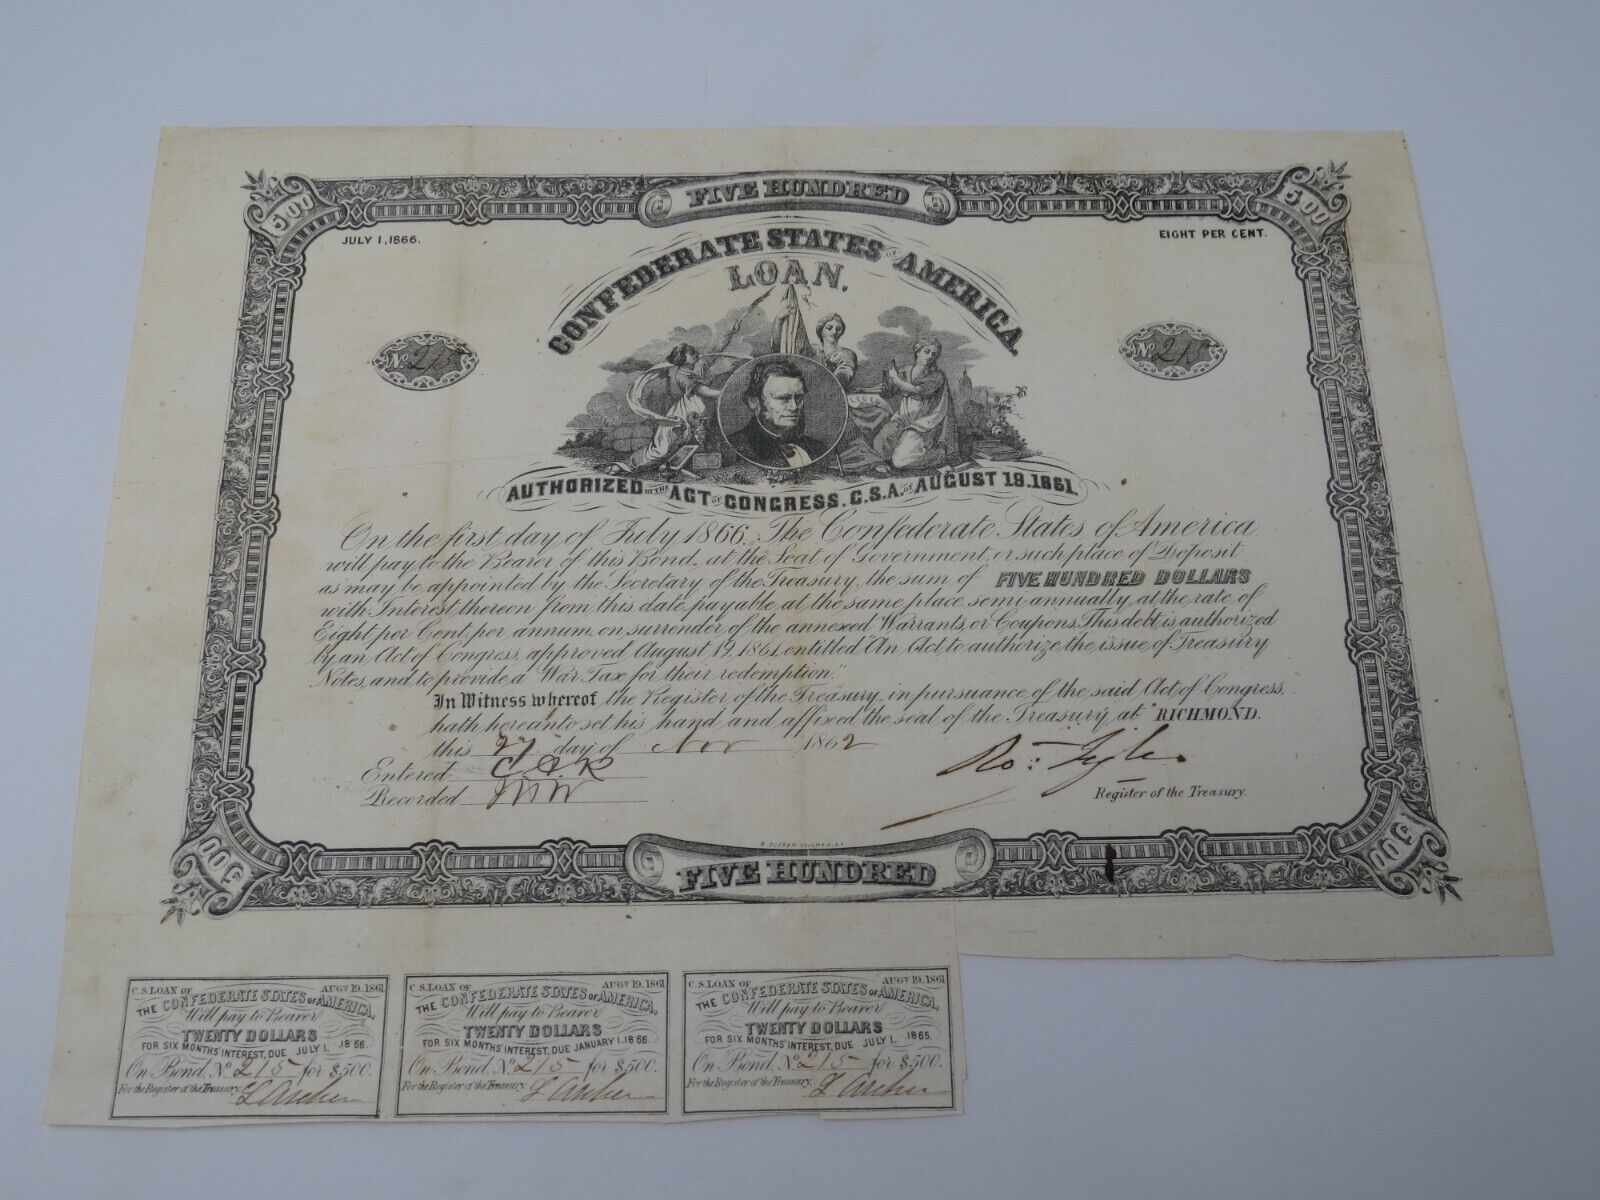 FIVE HUNDRED
500
500
JULY 1, 1866.
EIGHT PER CENT.
CONFEDERATE STATES OF AMERICA
LOAN.
No 215
No 215
AUTHORIZED BY THE ACT OF CONGRESS, C.S.A. OF AUGUST 19. 1861.
On the first day of July 1866. The Confederate States of America
will pay to the Bearer of this Bond, at the Seat of Government, or such place of Deposit
as may be appointed by the Secretary of the Treasury, the sum of FIVE HUNDRED DOLLARS
with Interest thereon from this date payable at the same place semi-annually, at the rate of
Eight per Cent. per annum, on surrender of the annexed Warrants, or Coupons. This debt is authorized
by an Act of Congress, approved August 19, 1861, entitled "An Act to authorize the issue of Treasury
Notes, and to provide a War Tax for their redemption."
In Witness whereof the Register of the Treasury, in pursuance of the said Act of Congress,
hath hereunto set his hand and affixed the seal of the Treasury, at RICHMOND.
this 27 day of Nov 1862
Entered C.A.R
Ro: Tyler
Recorded
Register of the Treasury.
500
500
FIVE HUNDRED
C.S. LOAN OF AUGT 19, 1861
THE CONFEDERATE STATES OF AMERICA,
Will pay to Bearer
TWENTY DOLLARS
FOR SIX MONTHS' INTEREST, DUE JULY 1, 1866.
On Bond, No 215 for $500.
For the Register of the Treasury.
C.S. LOAN OF AUGT 19, 1861
THE CONFEDERATE STATES OF AMERICA,
Will pay to Bearer
TWENTY DOLLARS
FOR SIX MONTHS' INTEREST, DUE JANUARY 1, 1866.
On Bond, No 215 for $500.
For the Register of the Treasury.
C.S. LOAN OF AUGT 19, 1861
THE CONFEDERATE STATES OF AMERICA,
Will pay to Bearer
TWENTY DOLLARS
FOR SIX MONTHS' INTEREST, DUE JULY 1, 1865.
On Bond, No 215 for $500.
For the Register of the Treasury.